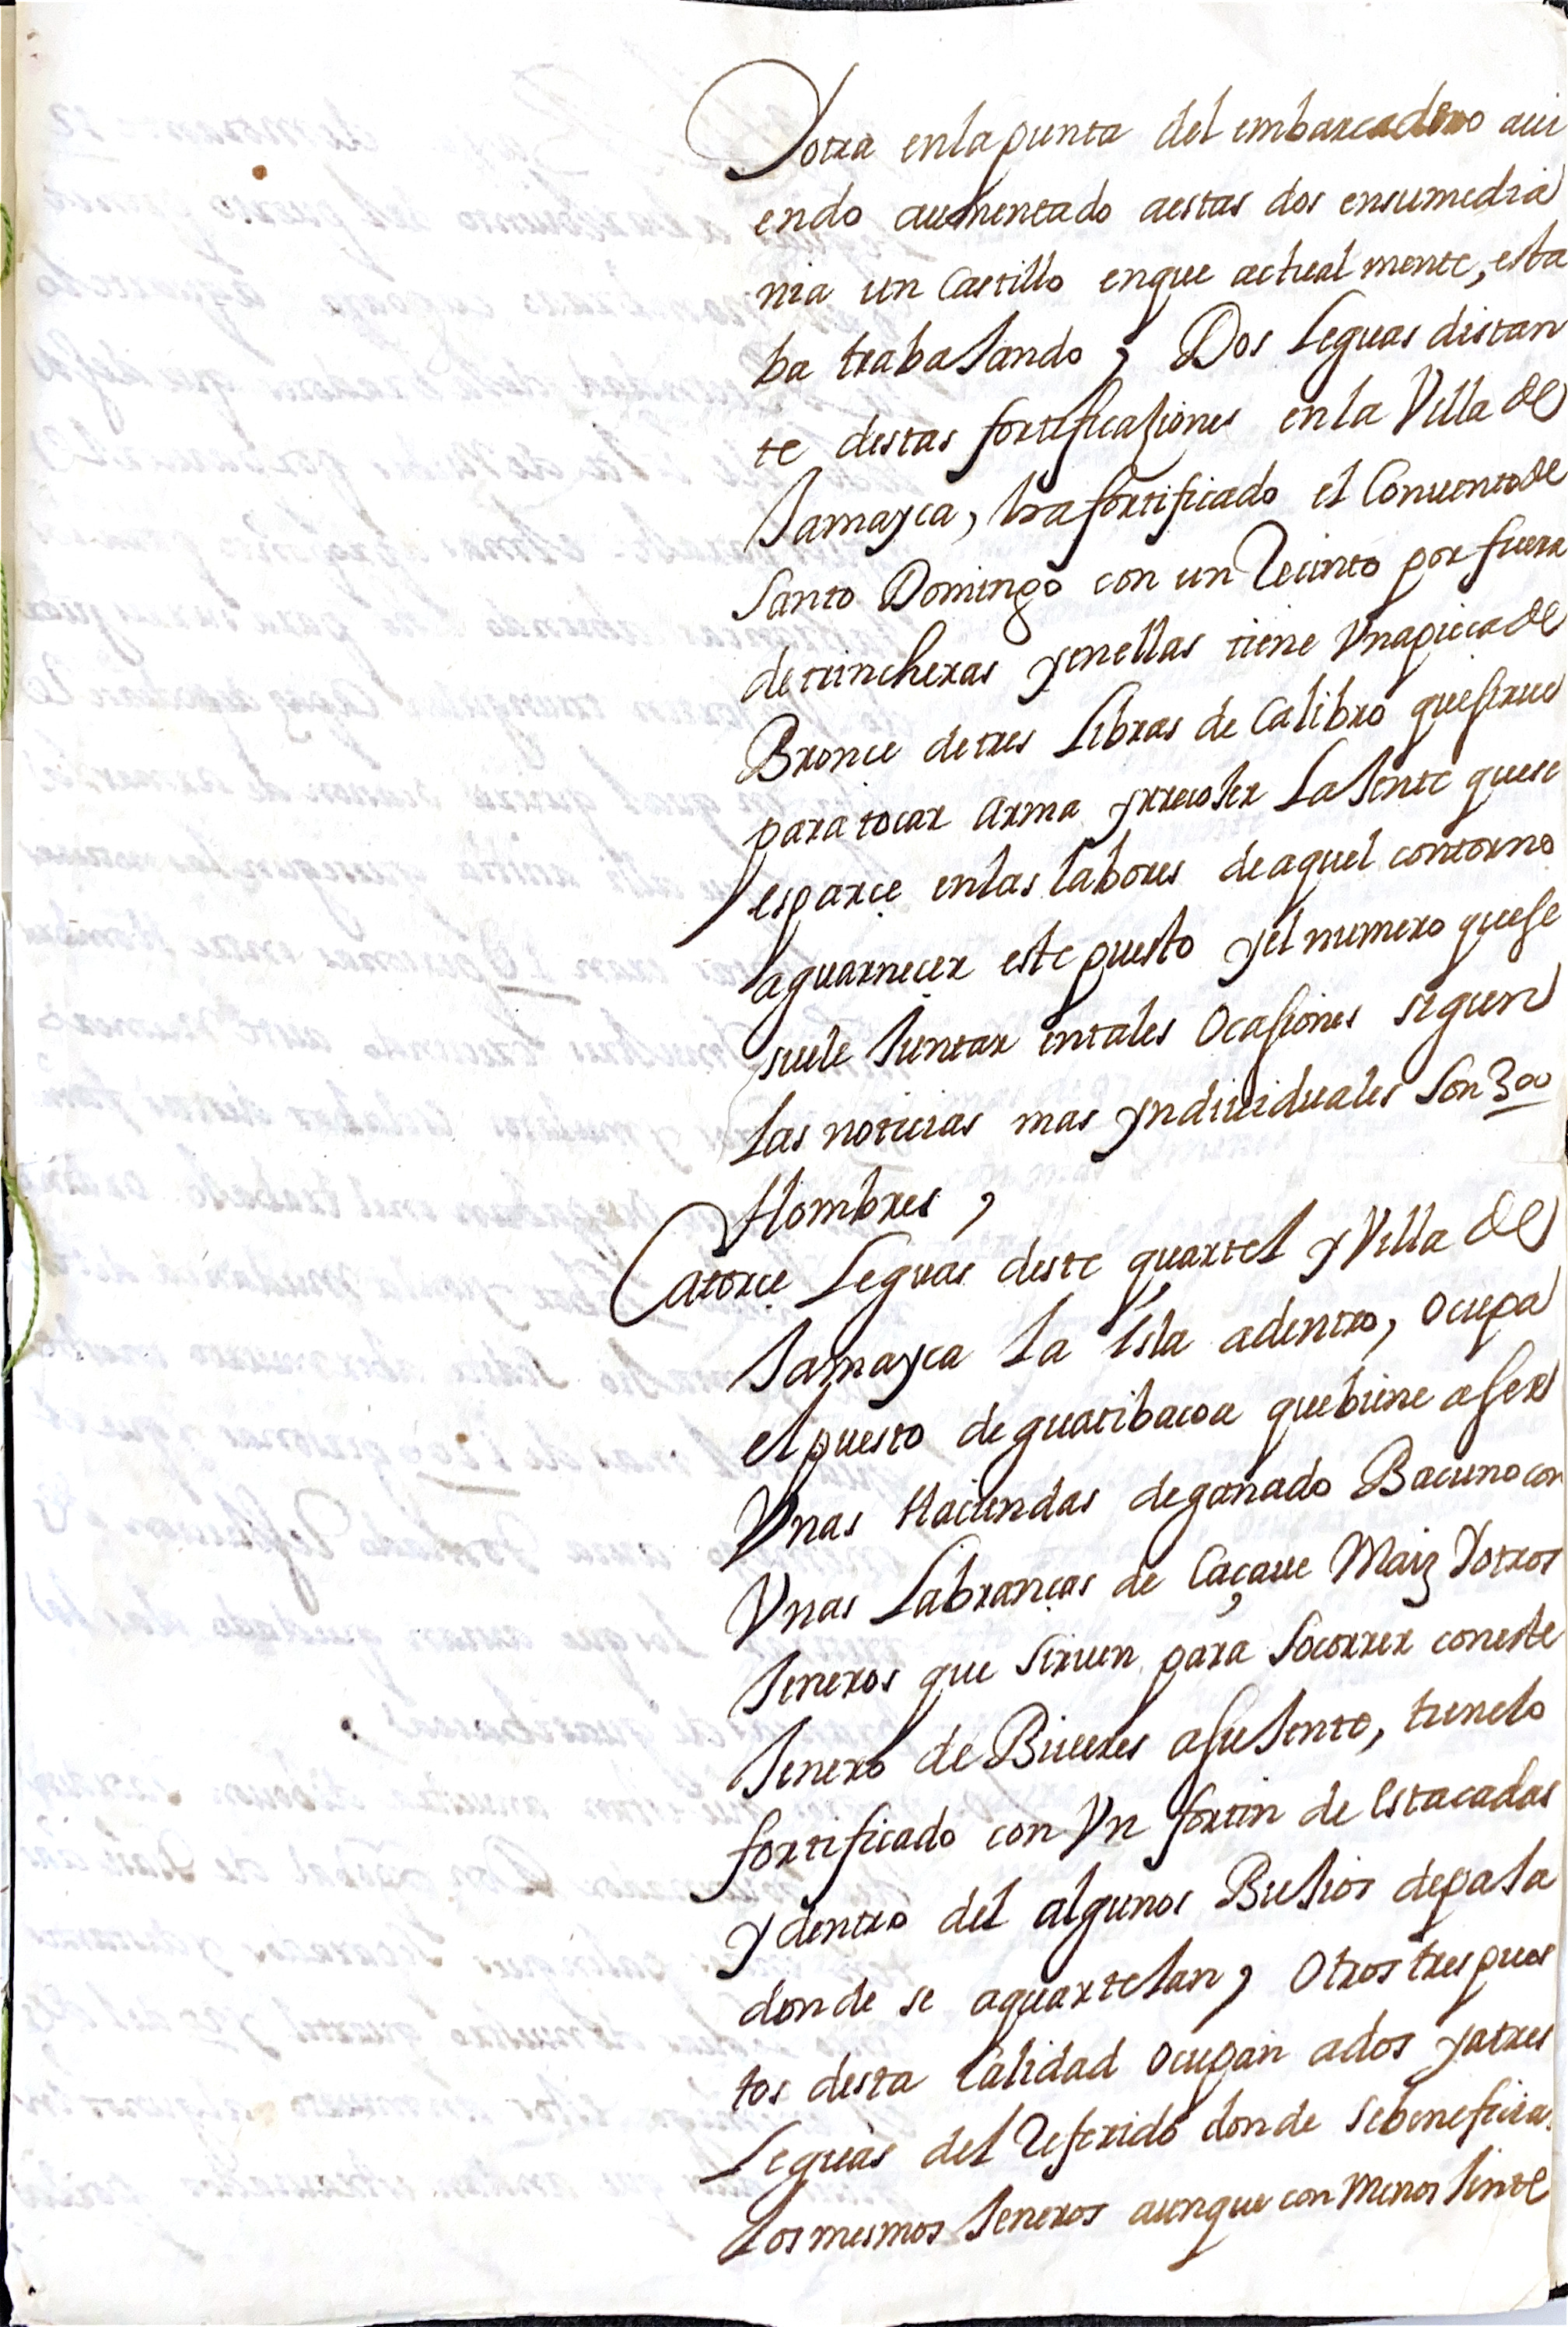 Yotra enlapunta del embarcadero aui
endo aumentado aestas dos ensumedia
nia un Castillo enque actual mente, esta
ba trabaJando, Dos Leguas distan
te destas fortificaçiones en la Villa de
Jamayca, ha fortificado el Conuento de
Santo Domingo con un Recinto por fuera
de trincheras yenellas tiene Vnapieca de
Bronce detres Libras de Calibro quesirue
para tocar Arma yrrecoJer La Jente quese
esparçe enlas labores deaquel contorno
aguarneçer este puesto yel numero quese
suele Juntar entales Ocasiones segun
las noticias mas yndiuiduales Son 300
Hombres,
Catorçe Leguas deste quartel y Villa de
Jamayca La isla adentro, ocupa
el puesto de guatibacoa quebiene aser
Vnas Haciendas deganado Bacuno con
Vnas Labranças de Caçaue Maiz Yotros
Jeneros que siruen para Socorrer coneste
Jenero de Biueres asuJente, tienelo
fortificado con Vn fortin de estacadas
y dentro del algunos BuJios depaJa
donde se aquartelan, Otros tres pues
tos desta Calidad ocupan ados yatres
Leguas del Referido donde sebeneficia
Los mesmos Jeneros aunque con menos Jente